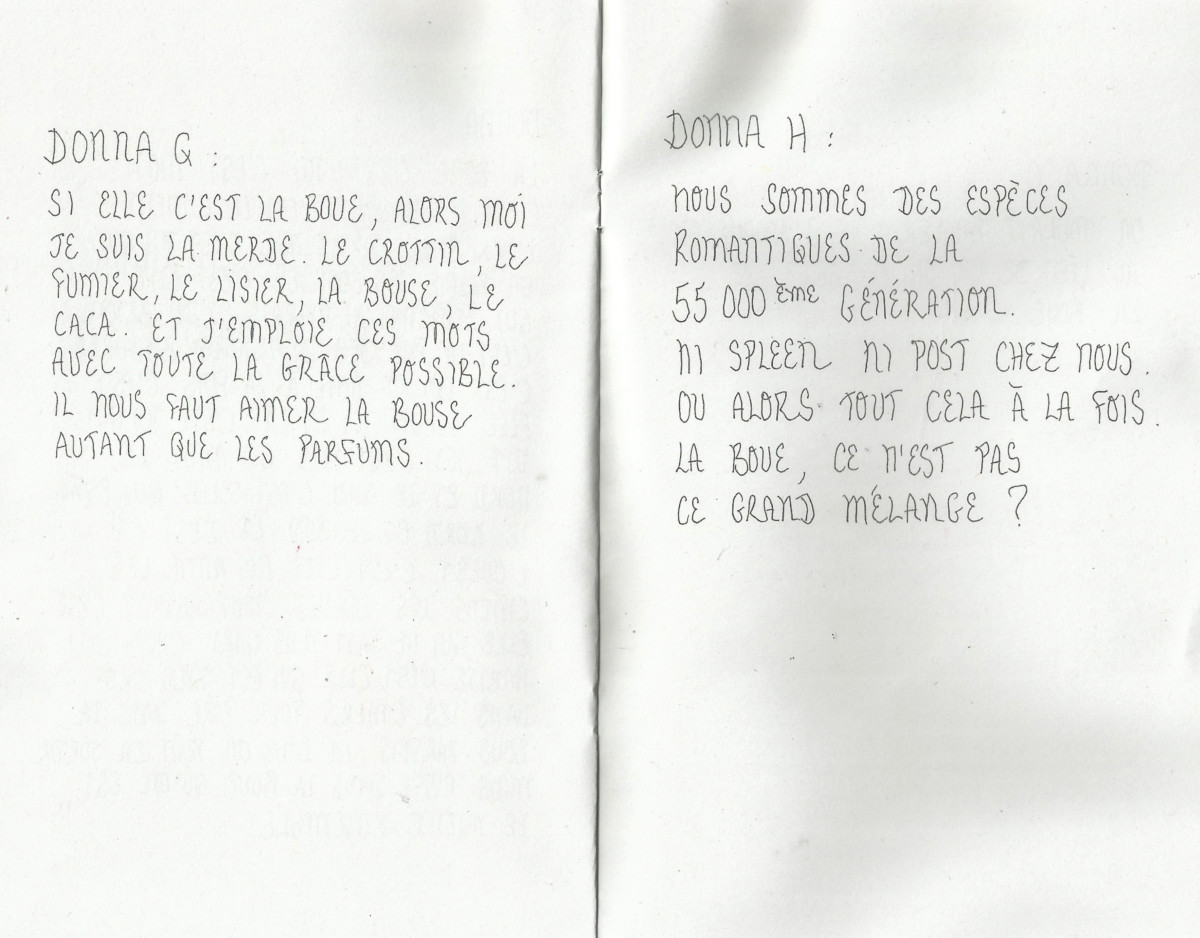 DONNA G :
SI ELLE C'EST LA BOUE, ALORS MOI
JE SUIS LA MERDE. LE CROTTIN, LE
FUMIER, LE LISIER, LA BOUSE, LE
CACA. ET J'EMPLOIE CES MOTS
AVEC TOUTE LA GRÂCE POSSIBLE.
IL NOUS FAUT AIMER LA BOUSE
AUTANT QUE LES PARFUMS.
DONNA H :
NOUS SOMMES DES ESPÈCES
ROMANTIQUES DE LA
55 000 ÈME GÉNÉRATION.
NI SPLEEN NI POST CHEZ NOUS.
OU ALORS TOUT CELA À LA FOIS.
LA BOUE, CE N'EST PAS
CE GRAND MÉLANGE ?